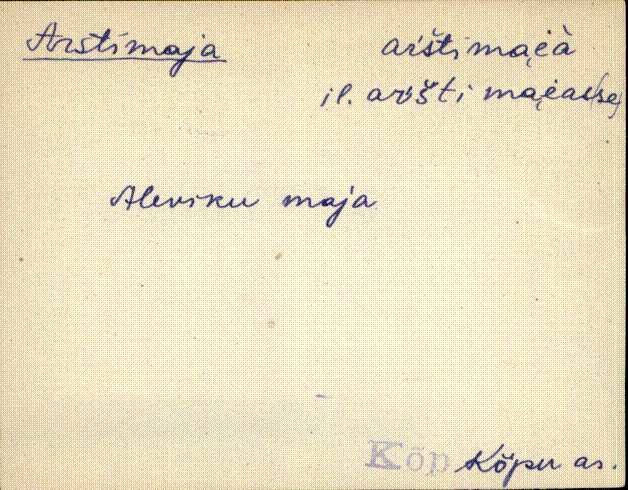 Arstimaja arštimai̯à
il. aršti mai̯as(se)
Aleviku maja
Kõp Kõpu as.